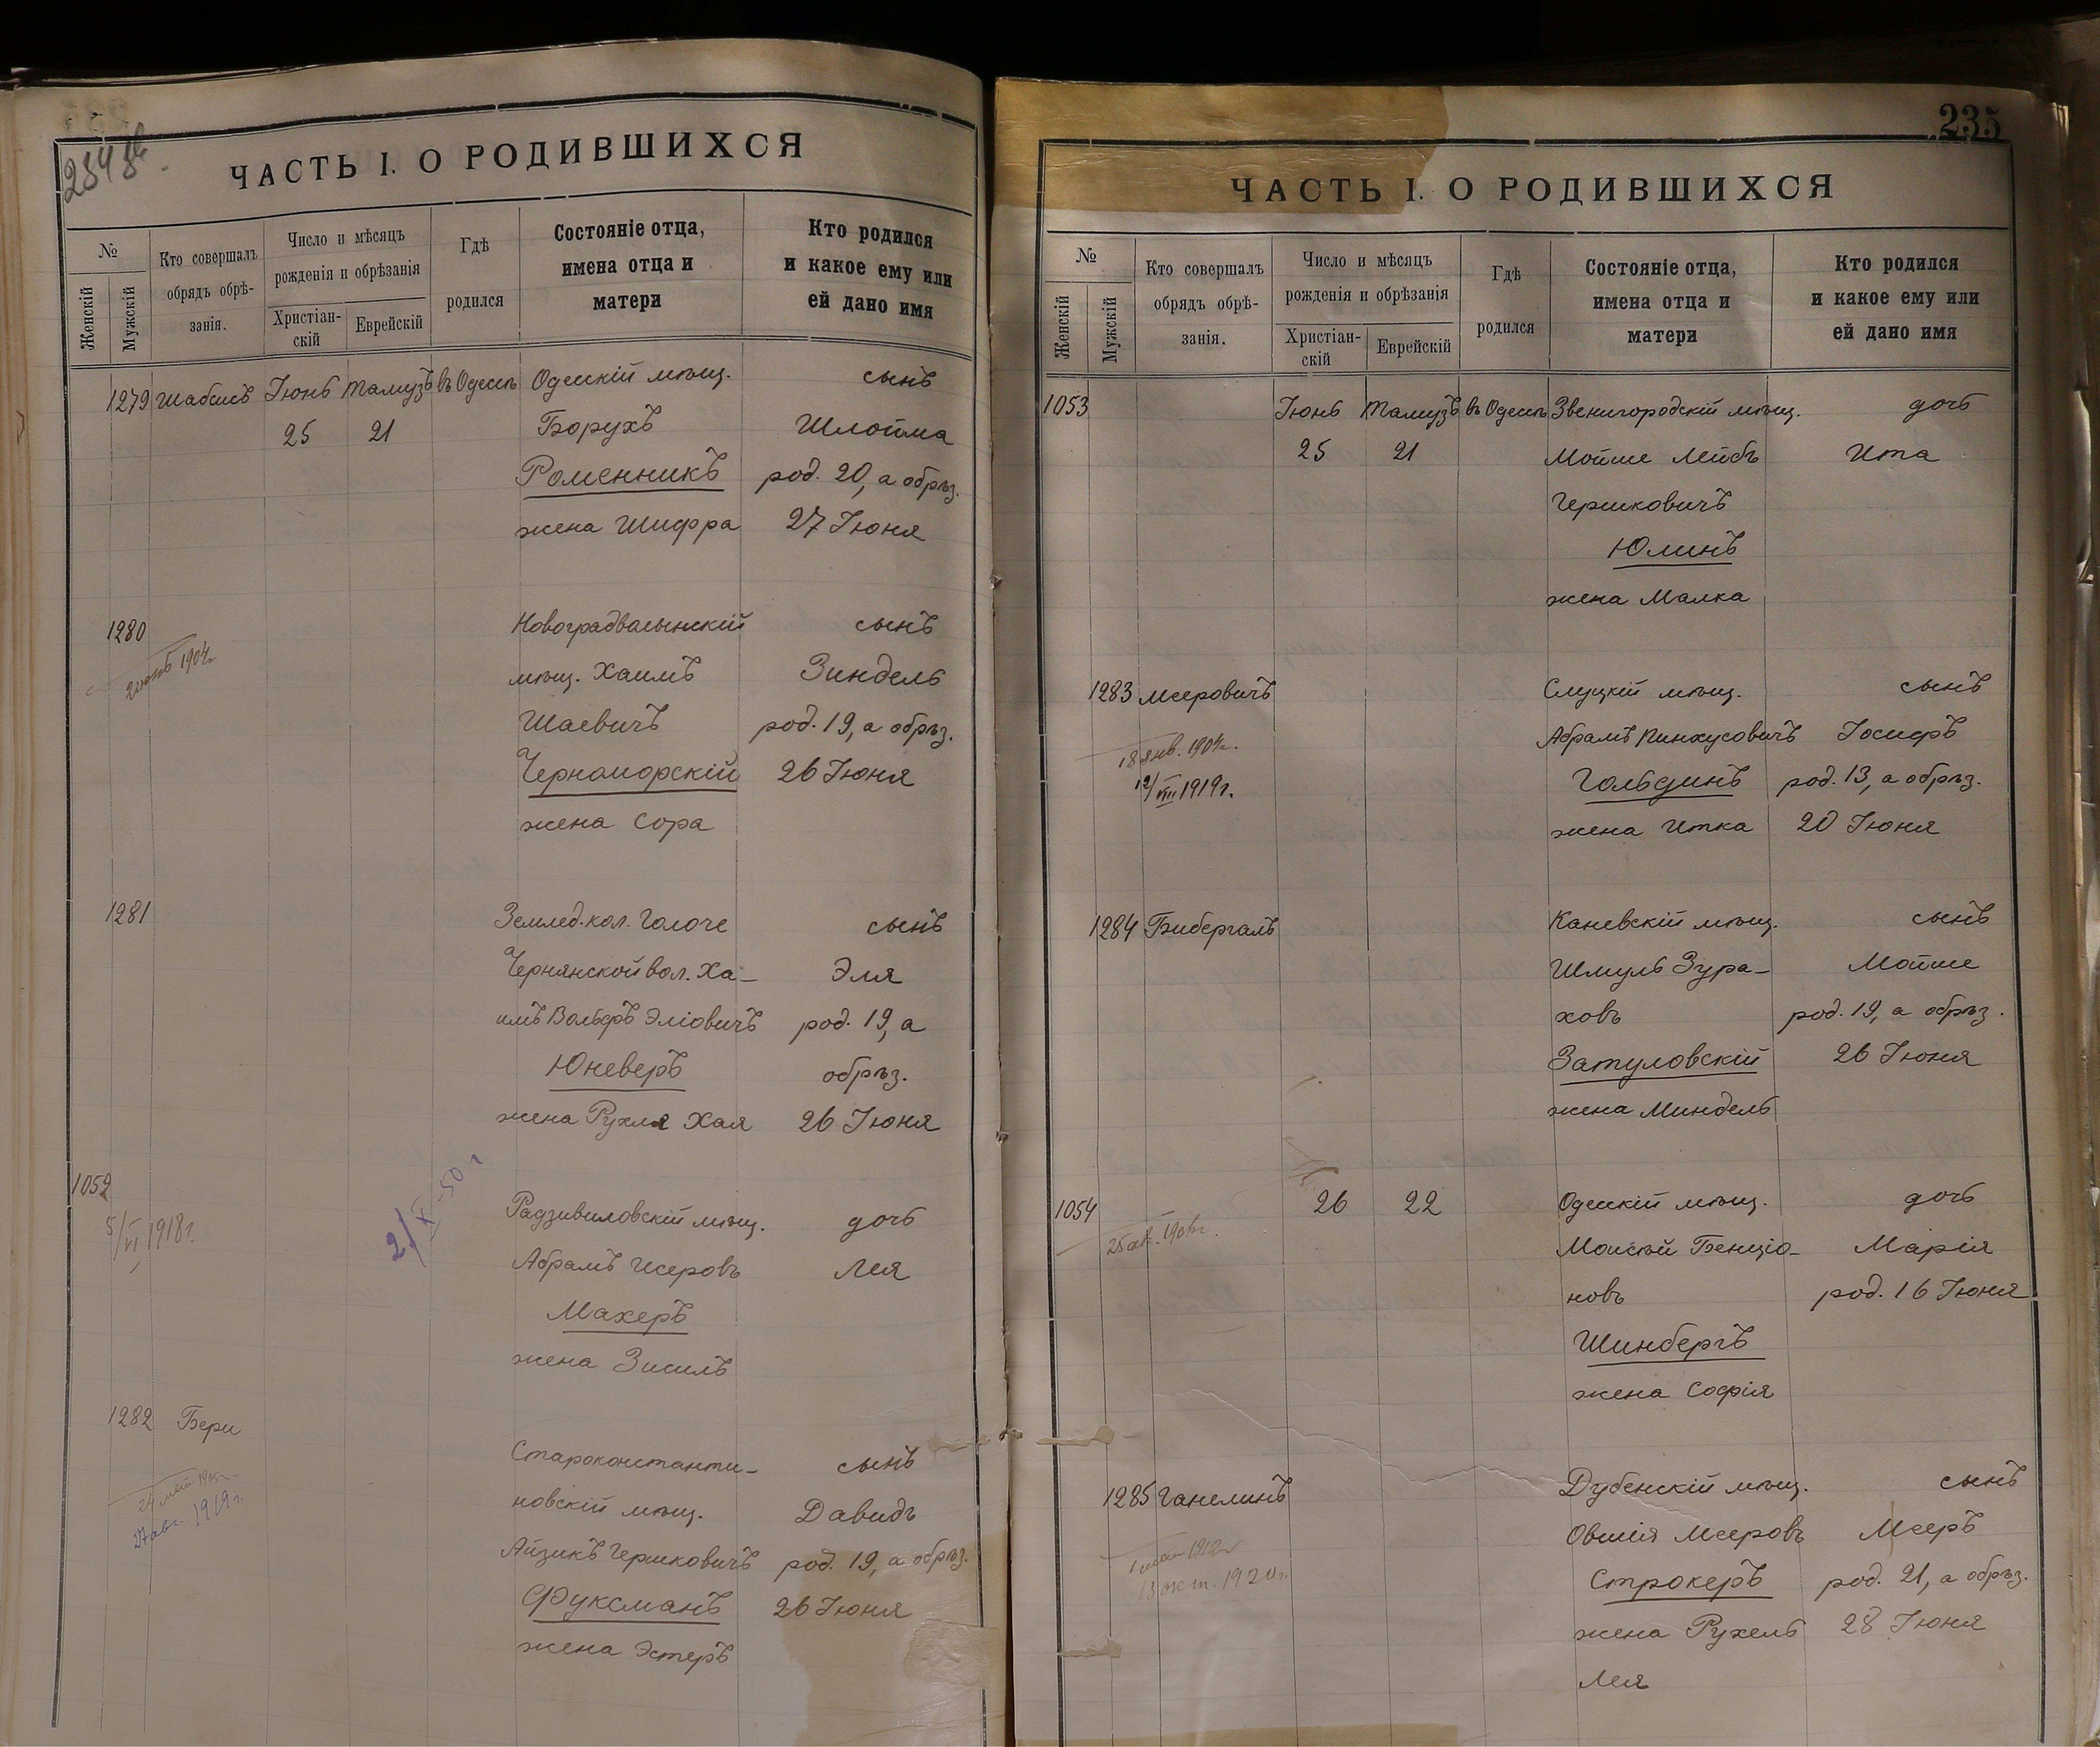 ЧАСТЬ I. О РОДИВШИХСЯ
№
Женскій
Мужскій
Кто совершалъ
обрядъ обрѣ-
занія.
Число и мѣсяцъ
рожденія и обрѣзанія
Христіан-
скій
Еврейскій
Гдѣ
родился
Состояніе отца,
имена отца и
матери
Кто родился
и какое ему или
ей дано имя
1279 Шабсисъ Іюнь Тамузъ въ Одессѣ Одесскій мѣщ. сынъ
25 21 Борухъ Шлойма
Роменникъ род. 20, а обрѣз.
жена Шифра 27 Іюня
1280 Новоградволынскій сынъ
мѣщ. Хаимъ Зиндель
Шаевичъ род. 19, а обрѣз.
Черноморскій 26 Іюня
жена Сора
1281 Землед. кол. Голоче сынъ
Чернянской вол. Ха- Эля
имъ Вольфъ Эліовичъ род. 19, а
Юневеръ обрѣз.
жена Рухля Хая 26 Іюня
1052
5/VI 1918 г.
2/X-50 г
Радзивиловскій мѣщ. дочь
Абрамъ Исеровъ Лея
Махеръ
жена Зисиль
1282 Бери
27 авг. 1919 г.
Староконстанти- сынъ
новскій мѣщ. Давидъ
Айзикъ Гершковичъ род. 19, а обрѣз.
Фуксманъ 26 Іюня
жена Эстеръ
235
ЧАСТЬ I. О РОДИВШИХСЯ
№
Женскій
Мужскій
Кто совершалъ
обрядъ обрѣ-
занія.
Число и мѣсяцъ
рожденія и обрѣзанія
Христіан-
скій
Еврейскій
Гдѣ
родился
Состояніе отца,
имена отца и
матери
Кто родился
и какое ему или
ей дано имя
1053 Іюнь Тамузъ въ Одессѣ Звенигородскій мѣщ. дочь
25 21 Мойше Лейбъ Ита
Гершковичъ
Юлинъ
жена Малка
1283 Мееровичъ Слуцкій мѣщ. сынъ
18 янв. 1904 г. Абрамъ Пинхусовичъ Іосифъ
12/VIII 1919 г. Гольдинъ род. 13, а обрѣз.
жена Итка 20 Іюня
1284 Бибергалъ Каневскій мѣщ. сынъ
Шмуль Зура- Мойше
ховъ род. 19, а обрѣз.
Затуловскій 26 Іюня
жена Миндель
1054 26 22 Одесскій мѣщ. дочь
Моисей Бенціо- Марія
новъ род. 16 Іюня
Шинбергъ
жена Софія
1285 Ганелинъ Дубенскій мѣщ. сынъ
Овшія Мееровъ Мееръ
13 окт. 1920 г. Строкеръ род. 21, а обрѣз.
жена Рухель 28 Іюня
Лея